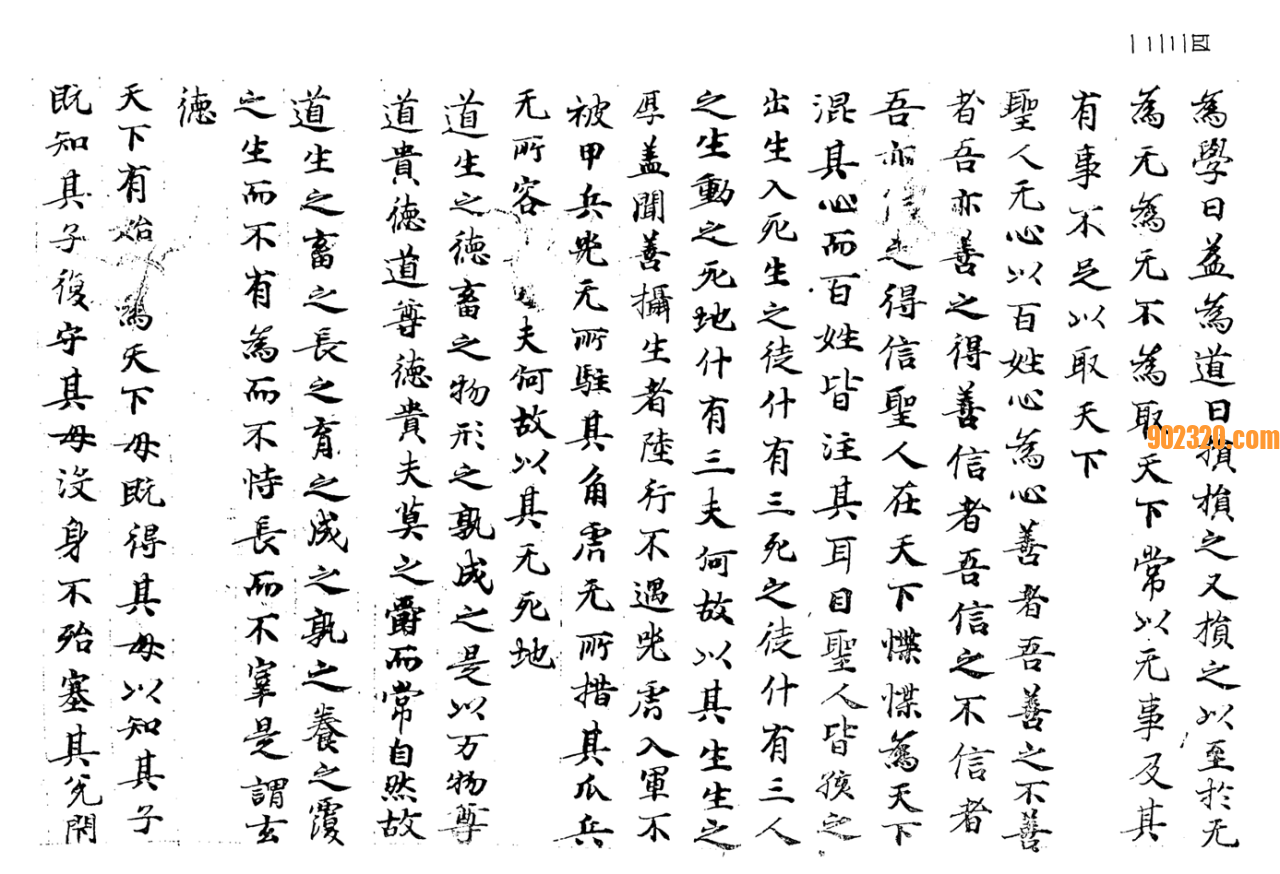 二三四
為學日益為道日損損之又損之以至於无
為无為无不為取天下常以无事及其
有事不足以取天下
聖人无心以百姓心為心善者吾善之不善
者吾亦善之得善信者吾信之不信者
吾亦信之得信聖人在天下惵惵為天下
混其心而百姓皆注其耳目聖人皆孩之
出生入死生之徒什有三死之徒什有三人
之生動之死地什有三夫何故以其生生之
厚盖聞善攝生者陸行不遇兕虎入軍不
被甲兵兕无所駐其角虎无所措其爪兵
无所容夫何故以其无死地
道生之德畜之物形之孰成之是以万物尊
道貴德道尊德貴夫莫之爵而常自然故
道生之畜之長之育之成之孰之養之覆
之生而不有為而不恃長而不宰是謂玄
德
天下有始為天下母既得其母以知其子
既知其子復守其母没身不殆塞其兌閇
902320.com